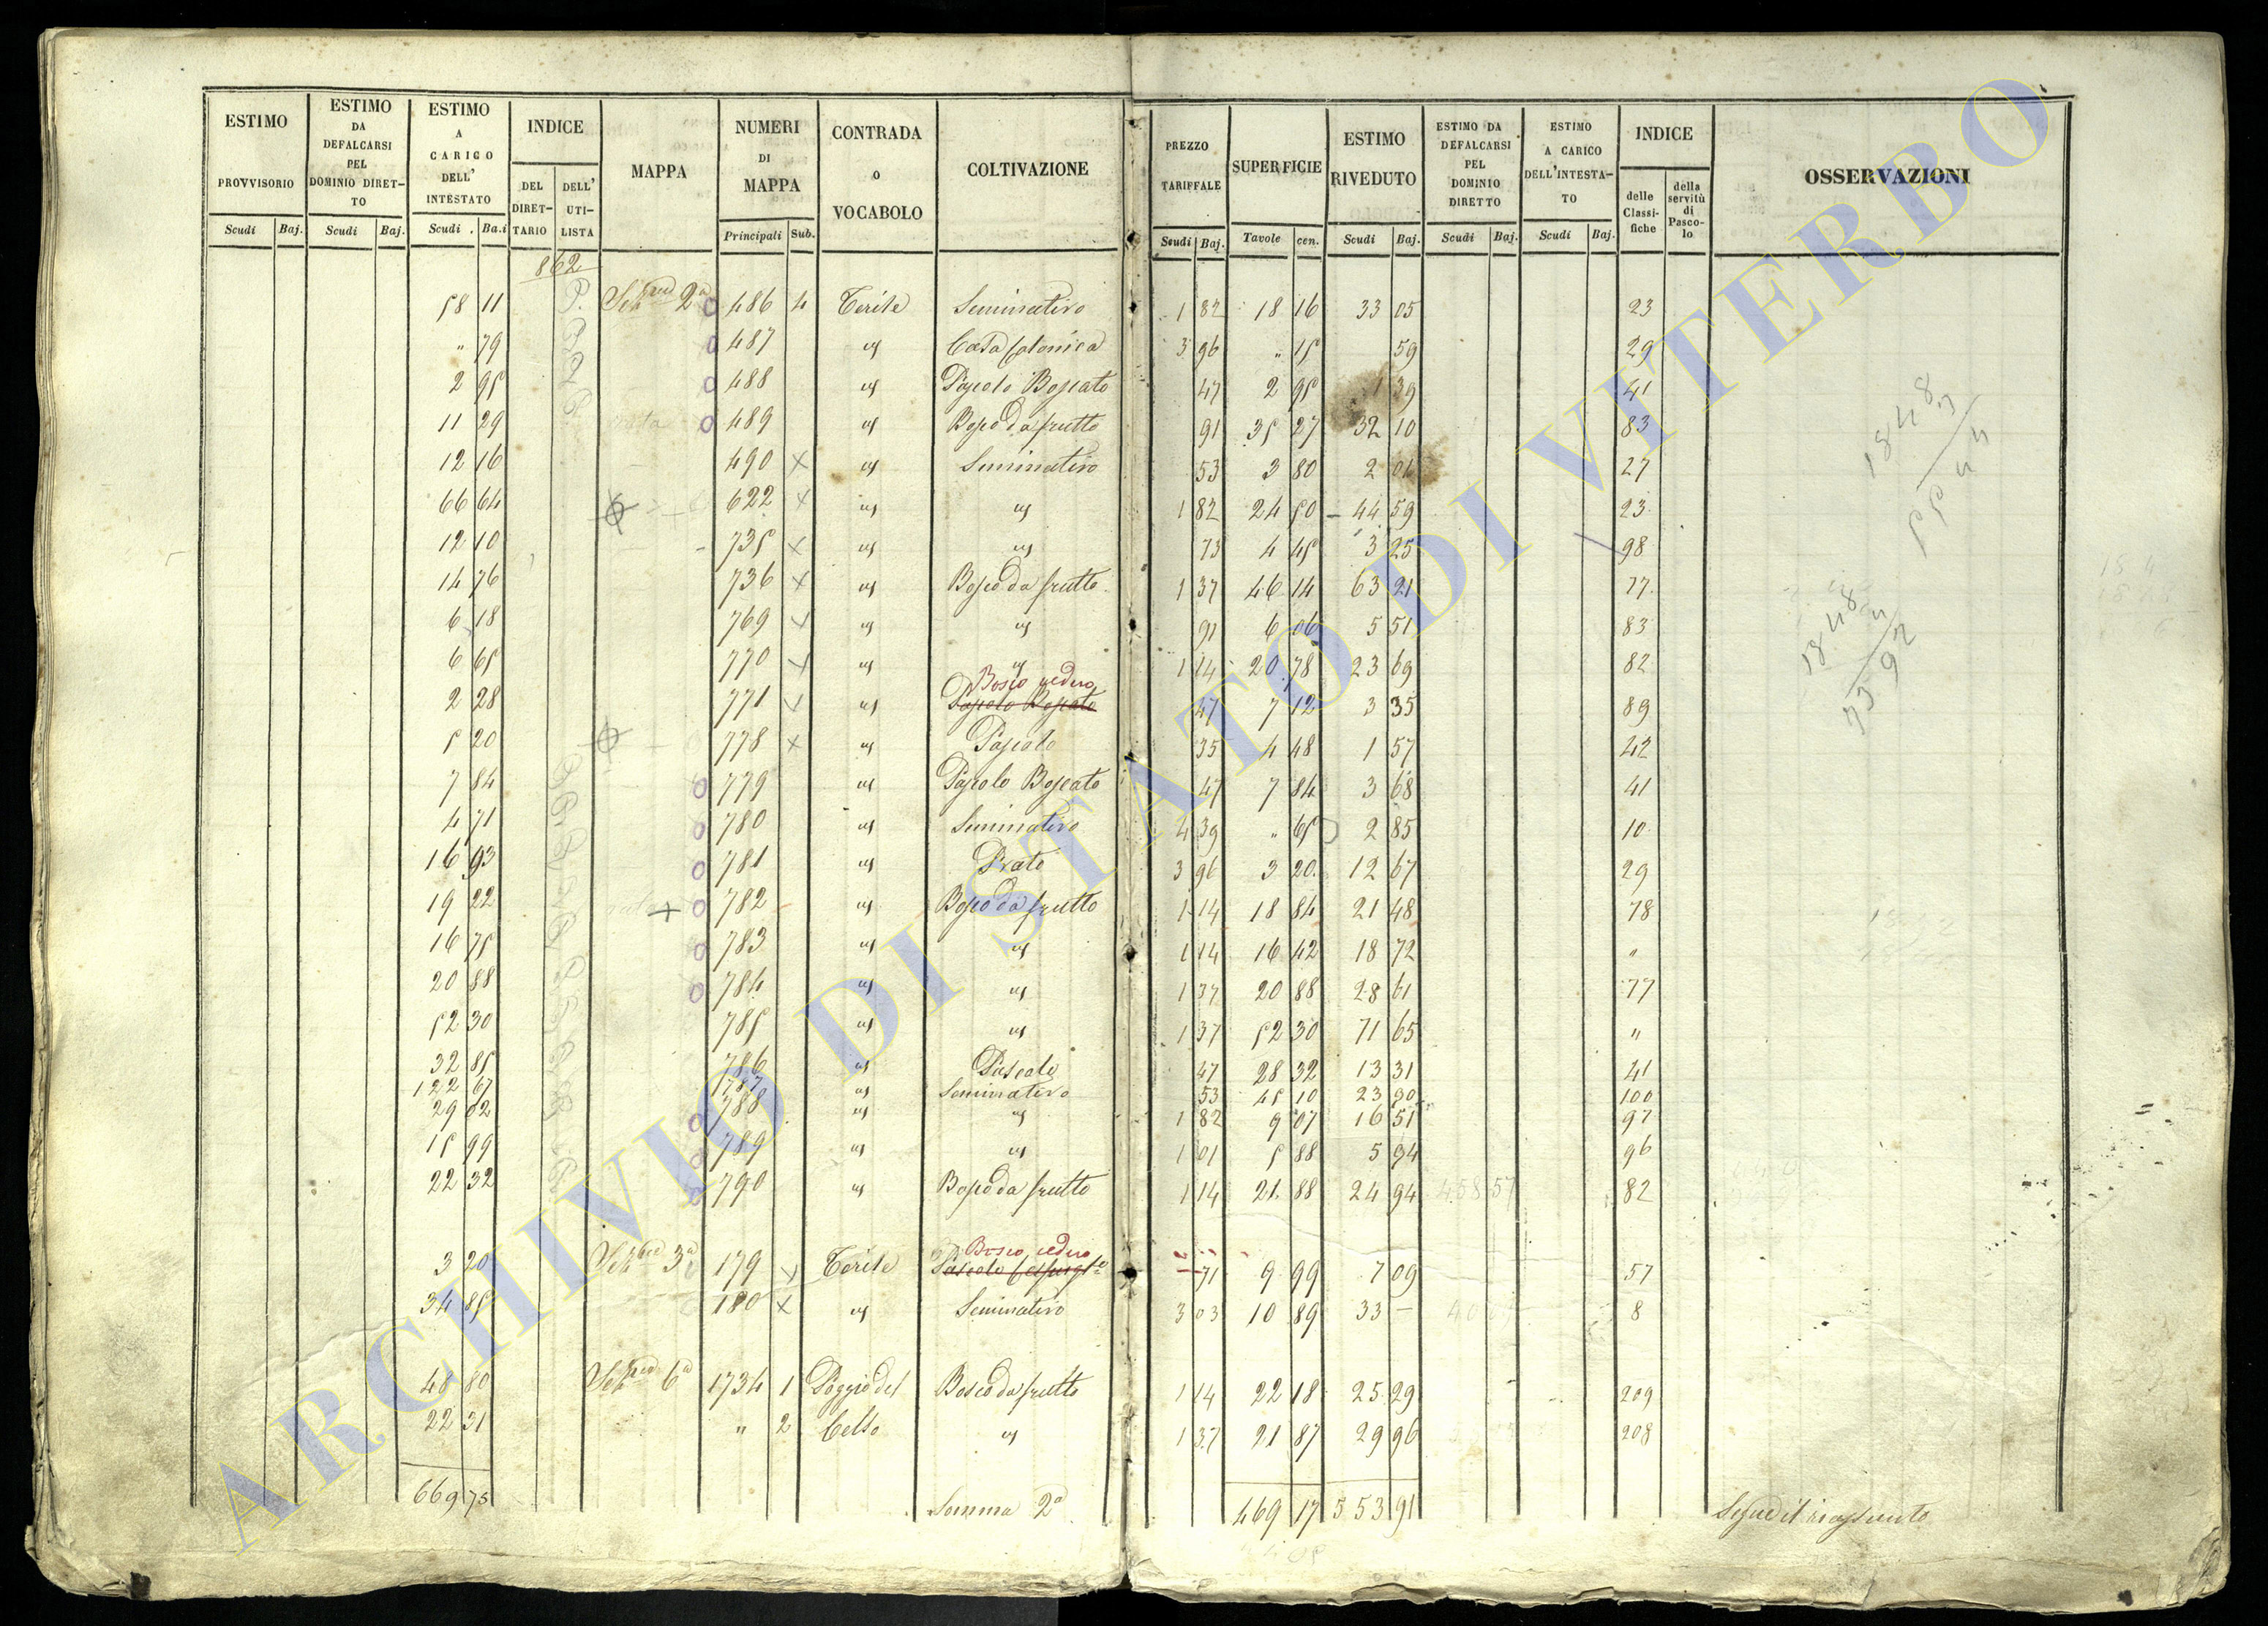 ESTIMO PROVVISORIO
ESTIMO DA DEFALCARSI PEL DOMINIO DIRETTO
ESTIMO A CARICO DELL' INTESTATO
INDICE
DEL DIRETTARIO
DELL' UTILISTA
MAPPA
NUMERI DI MAPPA
CONTRADA O VOCABOLO
COLTIVAZIONE
PREZZO TARIFFALE
SUPERFICIE
ESTIMO RIVEDUTO
ESTIMO DA DEFALCARSI PEL DOMINIO DIRETTO
ESTIMO A CARICO DELL'INTESTATO
INDICE
delle Classifiche
della servitù di Pascolo
OSSERVAZIONI
Scudi Baj. Scudi Baj. Scudi Ba.i Principali Sub. Scudi Baj. Tavole cen. Scudi Baj. Scudi Baj. Scudi Baj.
862
58 11 P. 2a 486 4 Cerite Seminativo 1 82 18 16 33 05 23
" 79 P 487 id Casa Colonica 3 96 " 15 59 29
2 95 P 488 id Pascolo Boscato 47 2 95 1 39 41
11 29 P 489 id Bosco da frutto 91 35 27 32 10 83
12 16 490 x id Seminativo 53 3 80 2 01 27
66 64 622 x id id 1 82 24 50 44 59 23
12 10 735 x id id 73 4 45 3 25 98
14 76 736 x id Bosco da frutto 1 37 46 14 63 21 77
6 18 769 x id id 91 6 06 5 51 83
6 65 770 x id id 1 14 20 78 23 69 82
Bosco ceduo
2 28 771 x id Pascolo Boscato 47 7 12 3 35 89
5 20 778 x id Pascolo 35 4 48 1 57 42
7 84 P 779 id Pascolo Boscato 47 7 84 3 68 41
4 71 P 780 id Seminativo 4 39 " 65 2 85 10
16 93 P 781 id Prato 3 96 3 20 12 67 29
19 22 P + 782 id Bosco da frutto 1 14 18 84 21 48 78
16 75 P 783 id id 1 14 16 42 18 72 "
20 88 P 784 id id 1 37 20 88 28 61 77
52 30 P 785 id id 1 37 52 30 71 65 "
32 85 P 786 id Pascolo 47 28 32 13 31 41
122 67 P 787 id Seminativo 53 45 10 23 90 100
29 02 P 788 id id 1 82 9 07 16 51 97
15 99 P 789 id id 1 01 5 88 5 94 96
22 32 P 790 id Bosco da frutto 1 14 21 88 24 94 458 57 82
Bosco ceduo
3 20 3a 179 x Cerite Pascolo 71 9 99 7 09 57
34 85 180 x id Seminativo 3 03 10 89 33 — 8
48 80 6a 1734 1 Poggio del Bosco da frutto 1 14 22 18 25 29 209
22 31 " 2 Celso id 1 37 21 87 29 96 208
669 75 Somma 2a 469 17 553 91 Segue il riassunto
ARCHIVIO DI STATO DI VITERBO